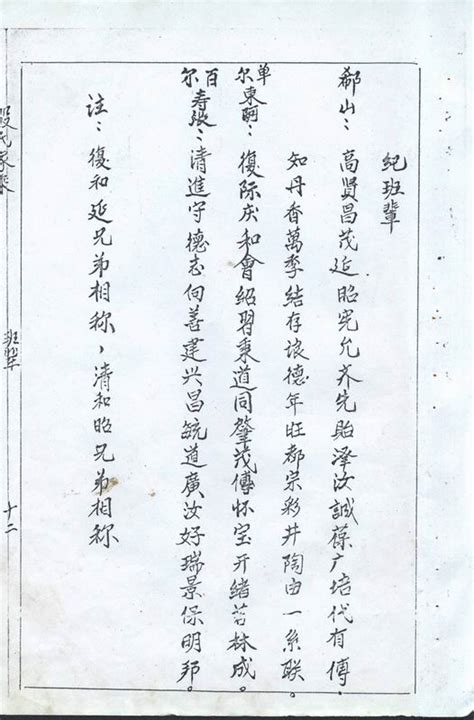 纪班辈
郗山：高贤昌茂延昭宪允齐完贻泽汝誠葆广培代有傳．
如丹香萬季结存诶德年旺都宗彩井陶由一系联。
单尔東阿：復际庆和會绍習秉道同肇茂傳怀宝开緒若林成。
百尔寿張：清進守德志伺善建兴昌毓道廣汝好瑞景保明邦。
注：復和延兄弟相称，清和昭兄弟相称
殷氏家乘
班辈
十二